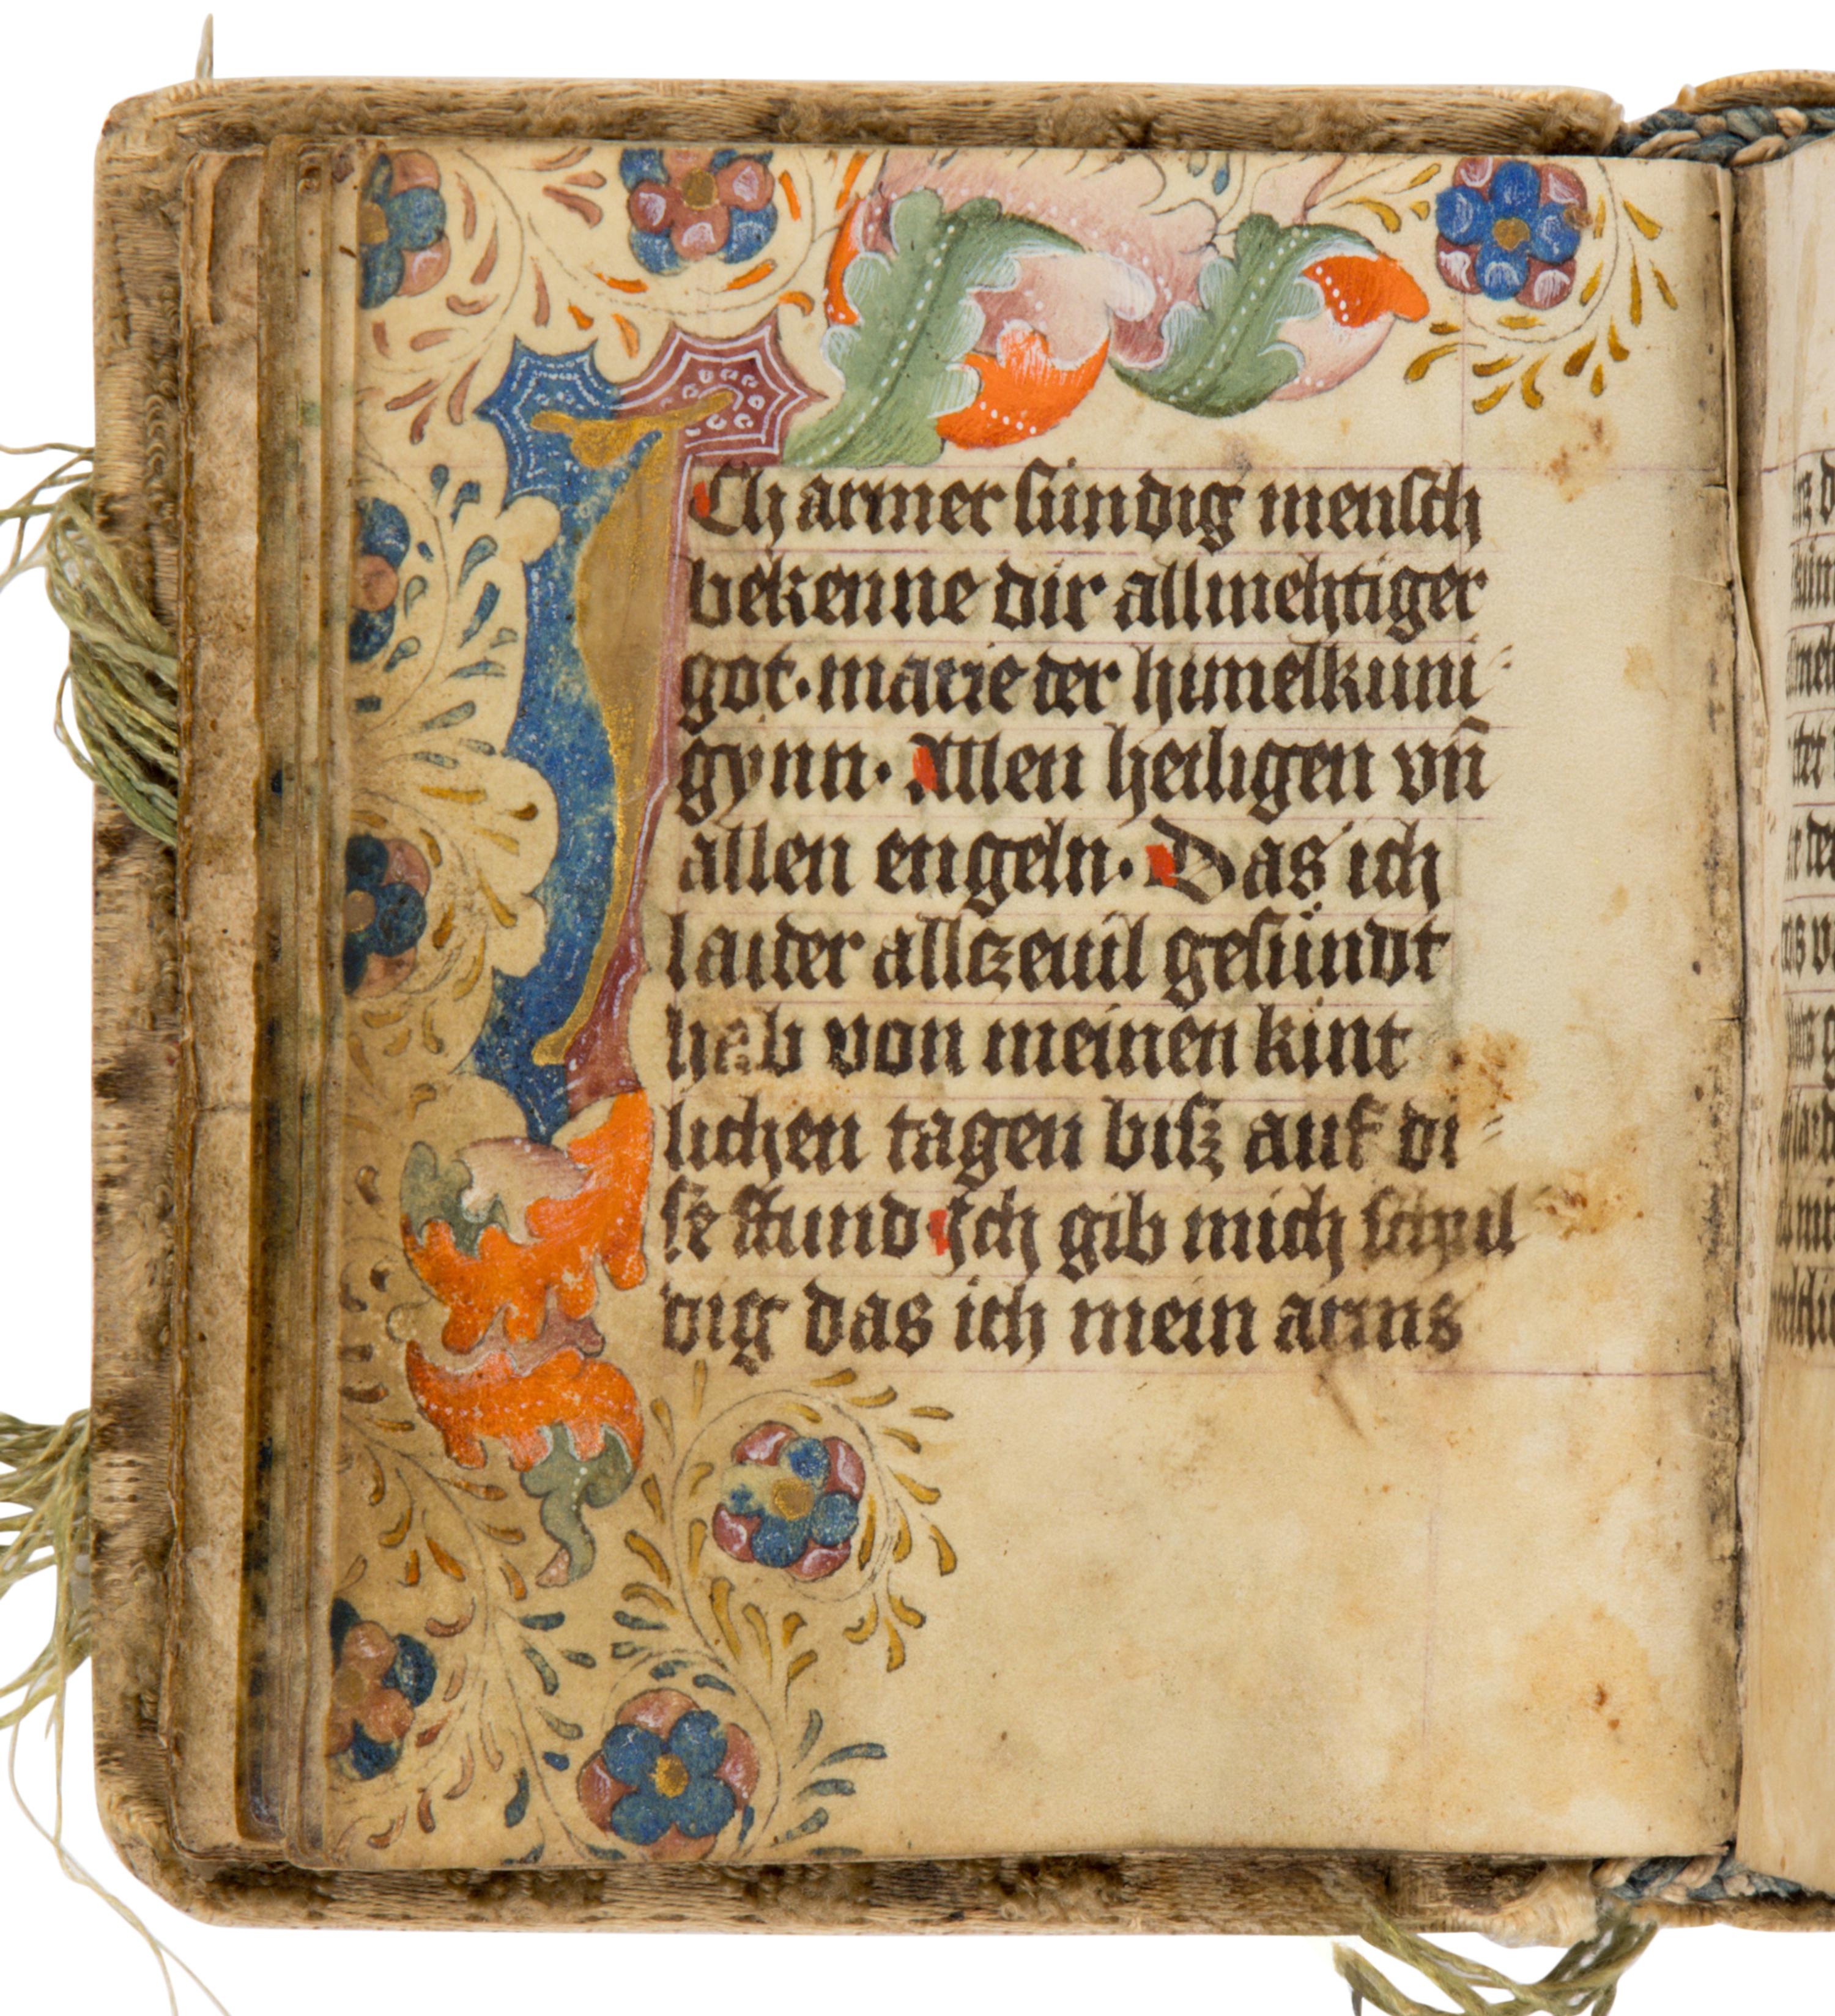 ICh armer sündig mensch
bekenne dir allmehtiger
got · marie der himelkuni-
gynn · Allen heiligen vn̄
allen engeln · Das ich
laider allczeuil gesündt
hab von meinen kint
lichen tagen bisz auf di-
se stund Ich gib mich schul
dig das ich mein arms